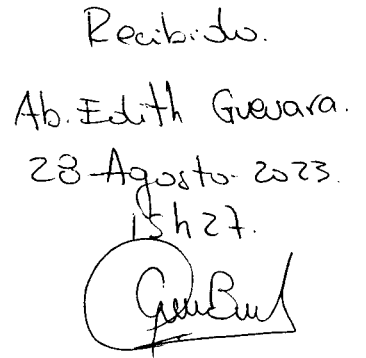 Recibido.
Ab. Edith Guevara.
28-Agosto-2023.
15h27.